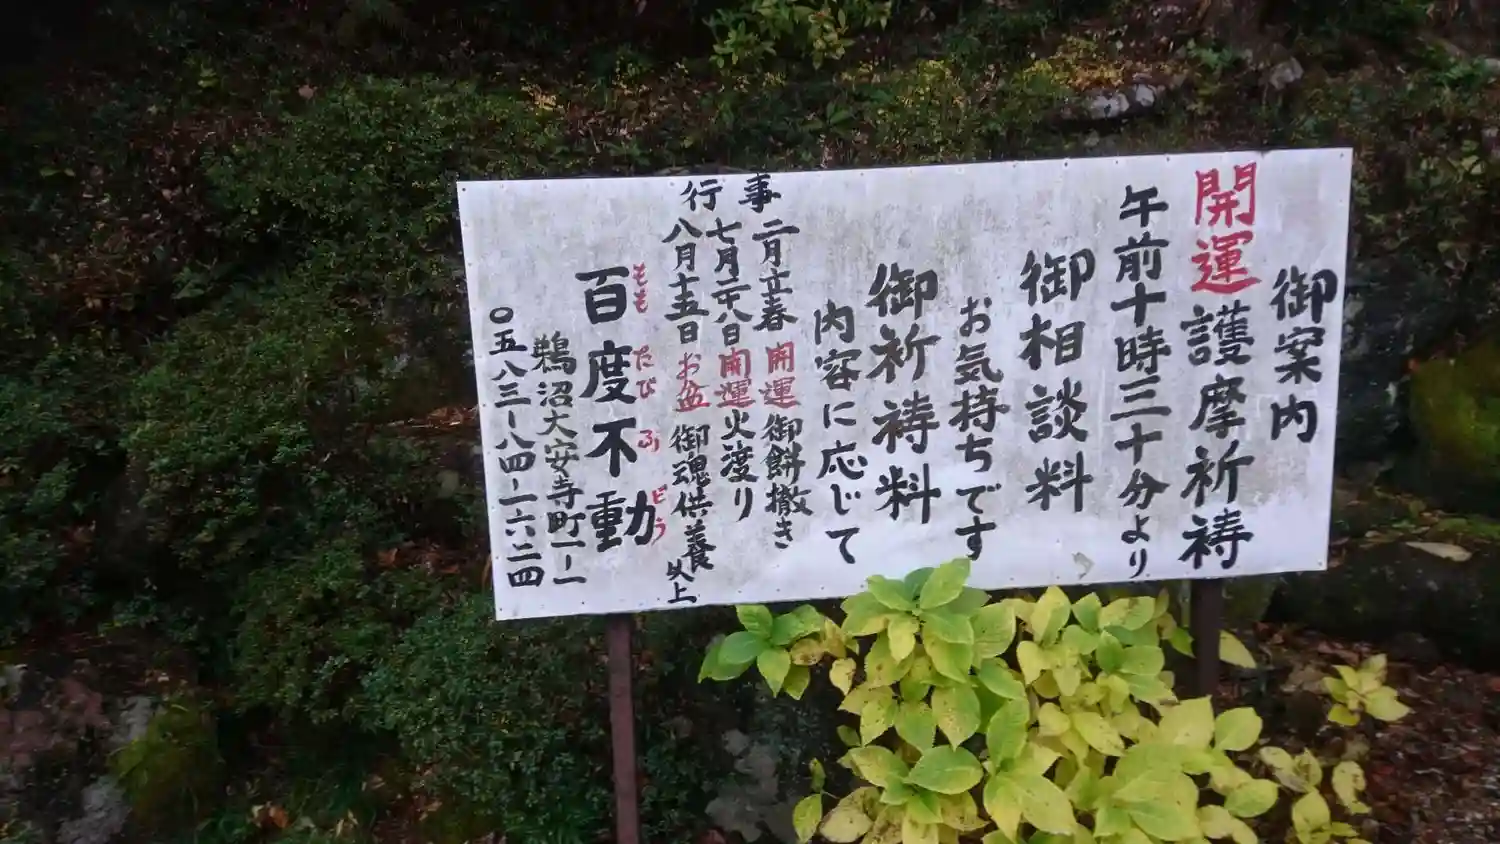 御案内
開運護摩祈祷
午前十時三十分より
御相談料
お気持ちです
御祈祷料
内容に応じて
行事
二月立春 開運御餅撒き
七月二十八日 開運火渡り
八月十五日 お盆御魂供養 以上
もも たび ふ どう
百度不動
鵜沼大安寺町一ー一
〇五八三ー八四ー一六二四